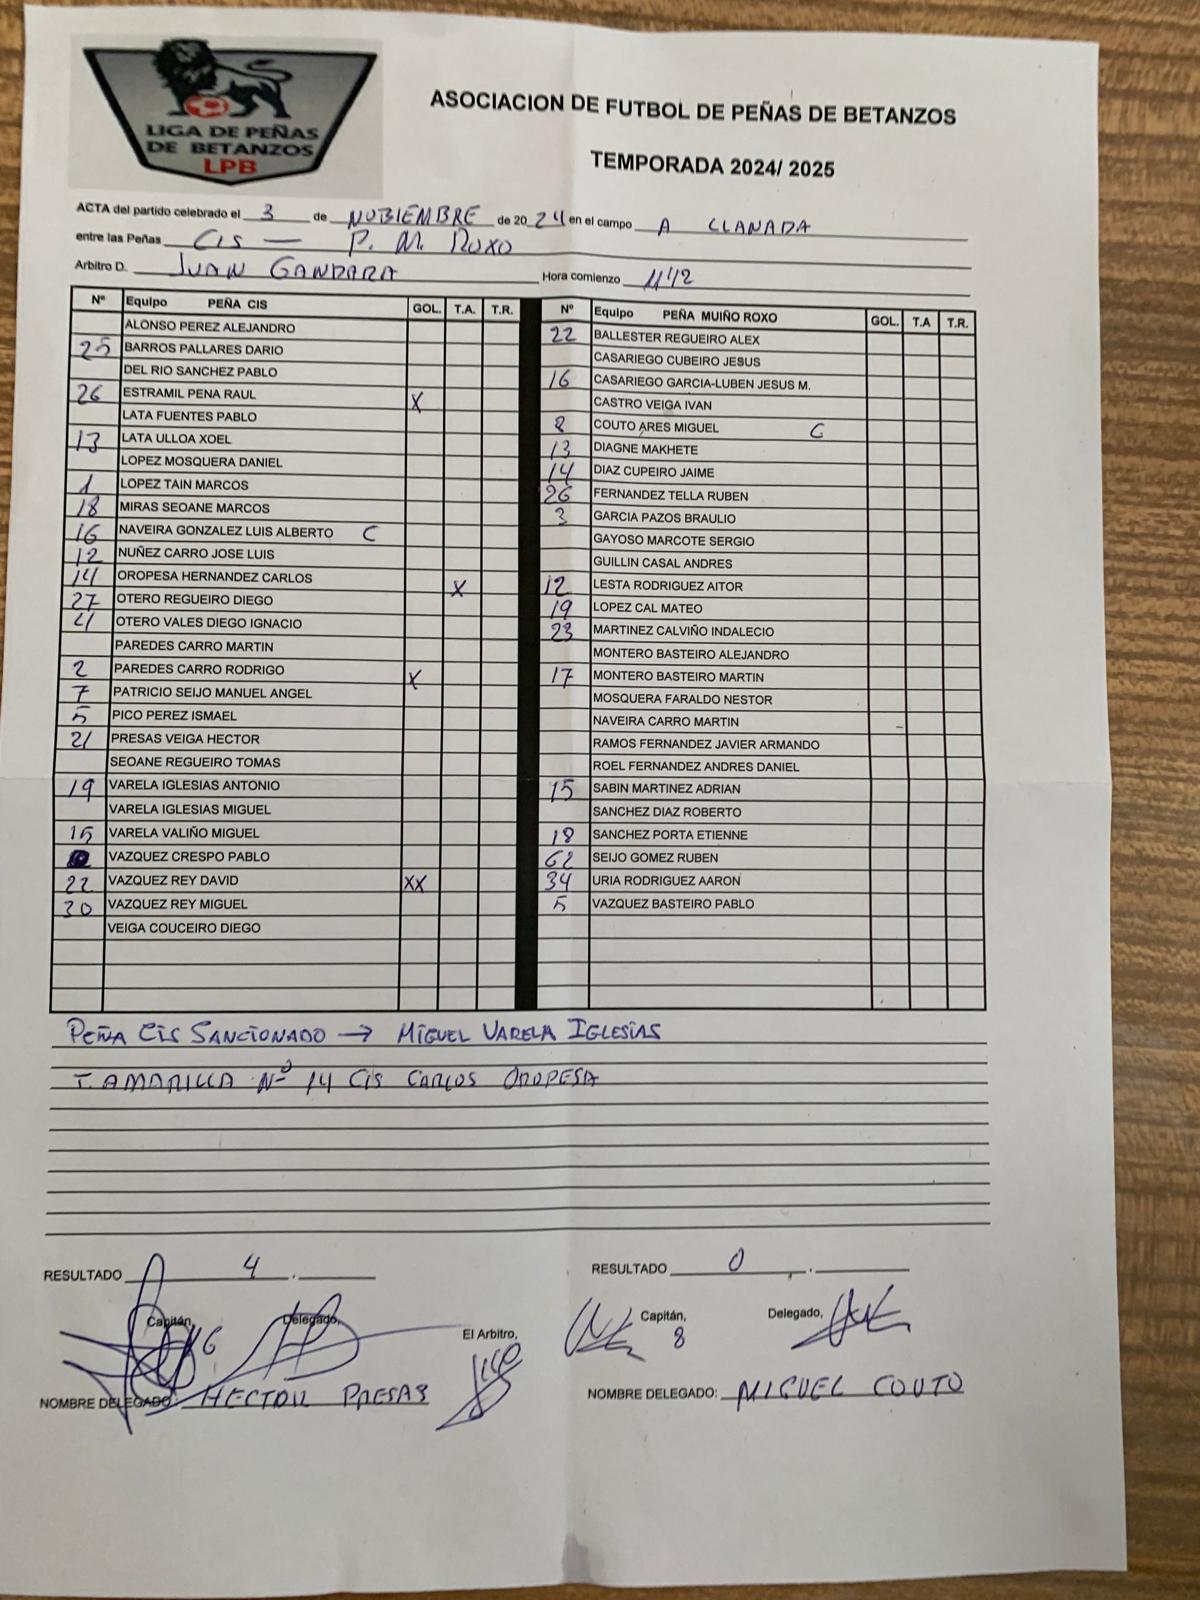 LIGA DE PEÑAS
DE BETANZOS
LPB
ASOCIACION DE FUTBOL DE PEÑAS DE BETANZOS
TEMPORADA 2024/ 2025
ACTA del partido celebrado el 3 de NOBIEMBRE de 20 24 en el campo A LLANADA
entre las Peñas CIS — P. M. ROXO
Arbitro D. JUAN GANDARA Hora comienzo 11'12
Nº Equipo PEÑA CIS GOL. T.A. T.R. Nº Equipo PEÑA MUIÑO ROXO GOL. T.A T.R.
ALONSO PEREZ ALEJANDRO 22 BALLESTER REGUEIRO ALEX
25 BARROS PALLARES DARIO CASARIEGO CUBEIRO JESUS
DEL RIO SANCHEZ PABLO 16 CASARIEGO GARCIA-LUBEN JESUS M.
26 ESTRAMIL PENA RAUL X CASTRO VEIGA IVAN
LATA FUENTES PABLO 8 COUTO ARES MIGUEL C
13 LATA ULLOA XOEL 13 DIAGNE MAKHETE
LOPEZ MOSQUERA DANIEL 14 DIAZ CUPEIRO JAIME
1 LOPEZ TAIN MARCOS 26 FERNANDEZ TELLA RUBEN
18 MIRAS SEOANE MARCOS 3 GARCIA PAZOS BRAULIO
16 NAVEIRA GONZALEZ LUIS ALBERTO C GAYOSO MARCOTE SERGIO
12 NUÑEZ CARRO JOSE LUIS GUILLIN CASAL ANDRES
14 OROPESA HERNANDEZ CARLOS X 12 LESTA RODRIGUEZ AITOR
27 OTERO REGUEIRO DIEGO 19 LOPEZ CAL MATEO
4 OTERO VALES DIEGO IGNACIO 23 MARTINEZ CALVIÑO INDALECIO
PAREDES CARRO MARTIN MONTERO BASTEIRO ALEJANDRO
2 PAREDES CARRO RODRIGO X 17 MONTERO BASTEIRO MARTIN
7 PATRICIO SEIJO MANUEL ANGEL MOSQUERA FARALDO NESTOR
5 PICO PEREZ ISMAEL NAVEIRA CARRO MARTIN
21 PRESAS VEIGA HECTOR RAMOS FERNANDEZ JAVIER ARMANDO
SEOANE REGUEIRO TOMAS ROEL FERNANDEZ ANDRES DANIEL
19 VARELA IGLESIAS ANTONIO 15 SABIN MARTINEZ ADRIAN
VARELA IGLESIAS MIGUEL SANCHEZ DIAZ ROBERTO
15 VARELA VALIÑO MIGUEL 18 SANCHEZ PORTA ETIENNE
VAZQUEZ CRESPO PABLO 62 SEIJO GOMEZ RUBEN
22 VAZQUEZ REY DAVID XX 34 URIA RODRIGUEZ AARON
30 VAZQUEZ REY MIGUEL 5 VAZQUEZ BASTEIRO PABLO
VEIGA COUCEIRO DIEGO
PEÑA CIS SANCIONADO → MIGUEL VARELA IGLESIAS
T. AMARILLA Nº 14 CIS CARLOS OROPESA
RESULTADO 4 . RESULTADO 0 .
Capitán, 16 Delegado, El Arbitro, Capitán, 8 Delegado,
NOMBRE DELEGADO: HECTOR PRESAS NOMBRE DELEGADO: MIGUEL COUTO